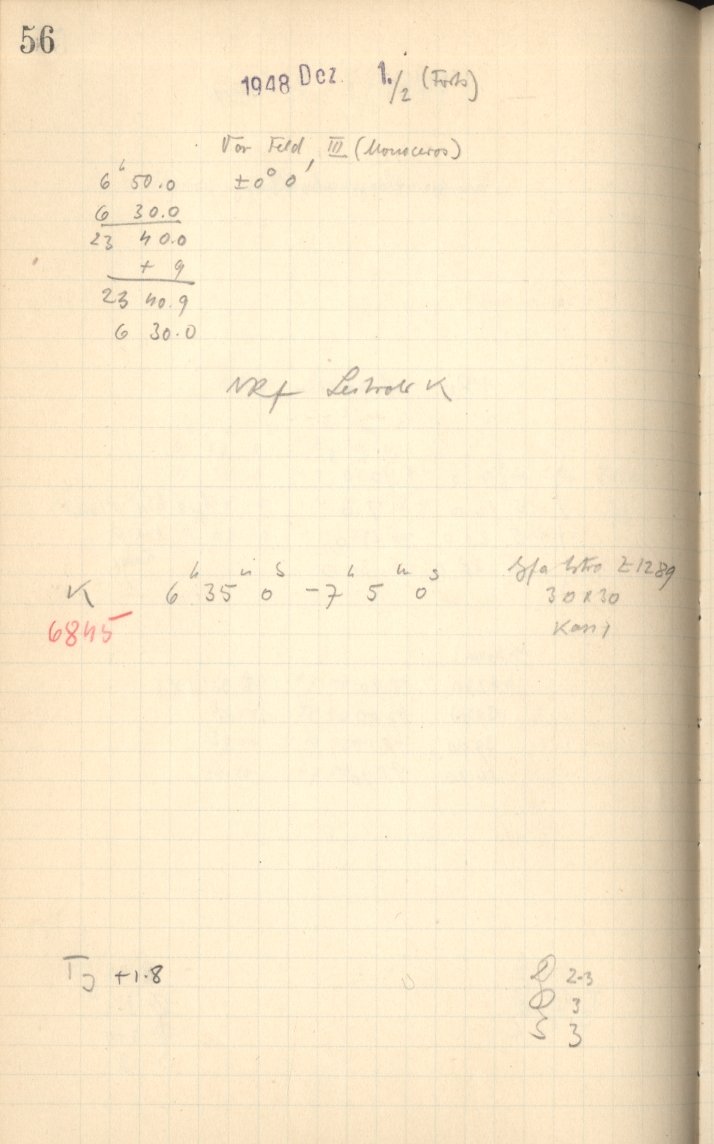 56
1948 Dez. 1./2 (Forts)
Var Feld, III (Monoceros)
6h 50.0 ±0° 0'
6 30.0
23 40.0
+ 9
23 40.9
6 30.0
NRf K
K 6h 35m 0s -7h 5m 0s Agfa Astro Z1289
6845 30x30
Kass 1
+1.8
2-3
3
S 3